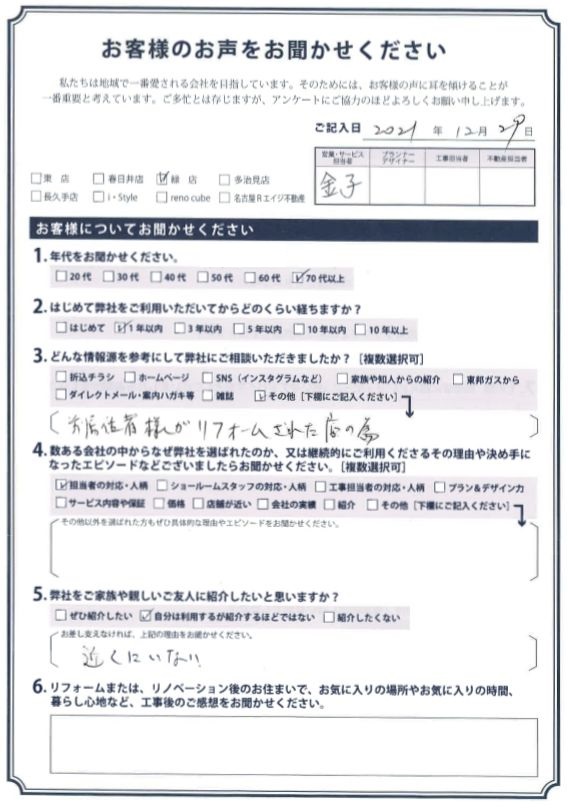 お客様のお声をお聞かせください
私たちは地域で一番愛される会社を目指しています。そのためには、お客様の声に耳を傾けることが
一番重要と考えています。ご多忙とは存じますが、アンケートにご協力のほどよろしくお願い申し上げます。
ご記入日 2021 年 12 月 29 日
営業・サービス担当者 プランナーデザイナー 工事担当者 不動産担当者
金子
□東 店 □春日井店 ☑緑 店 □多治見店
□長久手店 □i・Style □reno cube □名古屋Rエイジ不動産
お客様についてお聞かせください
1. 年代をお聞かせください。
□20代 □30代 □40代 □50代 □60代 ☑70代以上
2. はじめて弊社をご利用いただいてからどのくらい経ちますか？
□はじめて ☑1年以内 □3年以内 □5年以内 □10年以内 □10年以上
3. どんな情報源を参考にして弊社にご相談いただきましたか？［複数選択可］
□折込チラシ □ホームページ □SNS（インスタグラムなど） □家族や知人からの紹介 □東邦ガスから
□ダイレクトメール・案内ハガキ等 □雑誌 ☑その他［下欄にご記入ください］
居住者様がリフォームされた店の為
4. 数ある会社の中からなぜ弊社を選ばれたのか、又は継続的にご利用くださるその理由や決め手に
なったエピソードなどございましたらお聞かせください。［複数選択可］
☑担当者の対応・人柄 □ショールームスタッフの対応・人柄 □工事担当者の対応・人柄 □プラン＆デザイン力
□サービス内容や保証 □価格 □店舗が近い □会社の実績 □紹介 □その他［下欄にご記入ください］
その他以外を選ばれた方もぜひ具体的な理由やエピソードをお聞かせください。
5. 弊社をご家族や親しいご友人に紹介したいと思いますか？
□ぜひ紹介したい ☑自分は利用するが紹介するほどではない □紹介したくない
お差し支えなければ、上記の理由をお聞かせください。
近くにいない
6. リフォームまたは、リノベーション後のお住まいで、お気に入りの場所やお気に入りの時間、
暮らし心地など、工事後のご感想をお聞かせください。